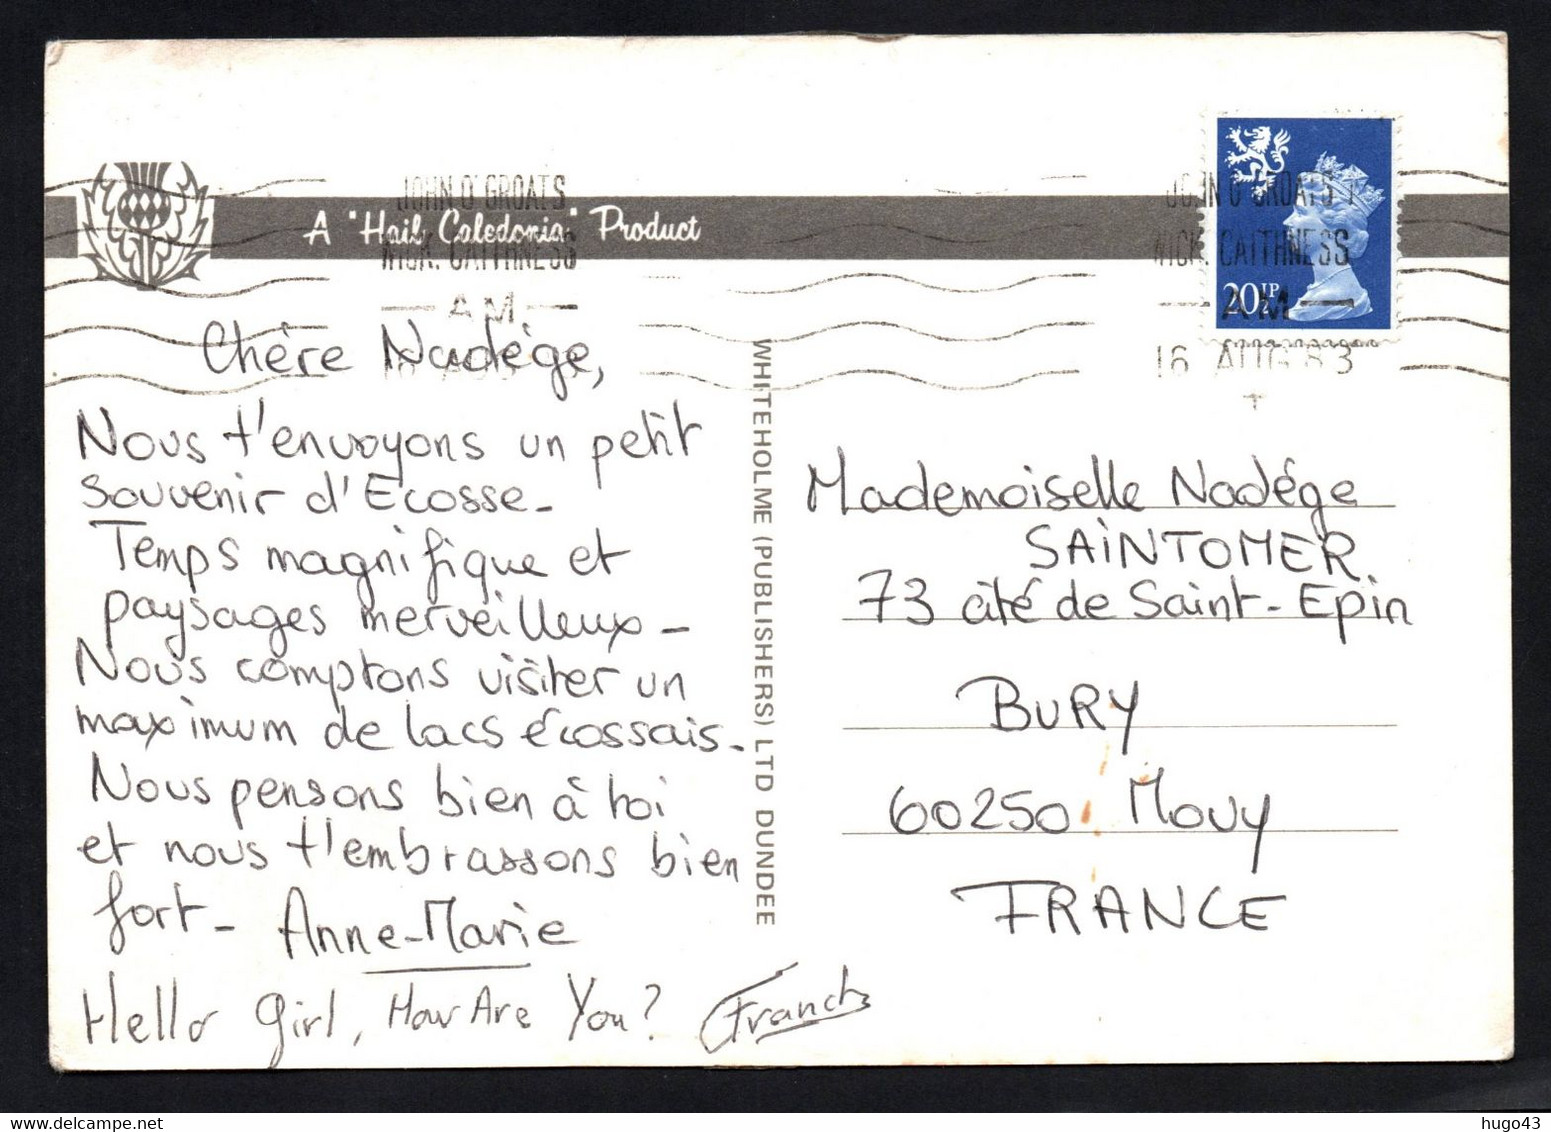 JOHN O' GROATS
WICK. CAITHNESS
AM
A "Hail Caledonia" Product
JOHN O' GROATS
WICK. CAITHNESS
AM
16 AUG 83
20½P
Chère Nadège,
Nous t'envoyons un petit
souvenir d'Ecosse-
Temps magnifique et
paysages merveilleux-
Nous comptons visiter un
maximum de lacs écossais-
Nous pensons bien à toi
et nous t'embrassons bien
fort- Anne-Marie
Hello Girl, How Are You?
WHITEHOLME (PUBLISHERS) LTD DUNDEE
Mademoiselle Nadége
SAINTOMER
73 cité de Saint-Epin
BURY
60250 Mouy
FRANCE
hugo43